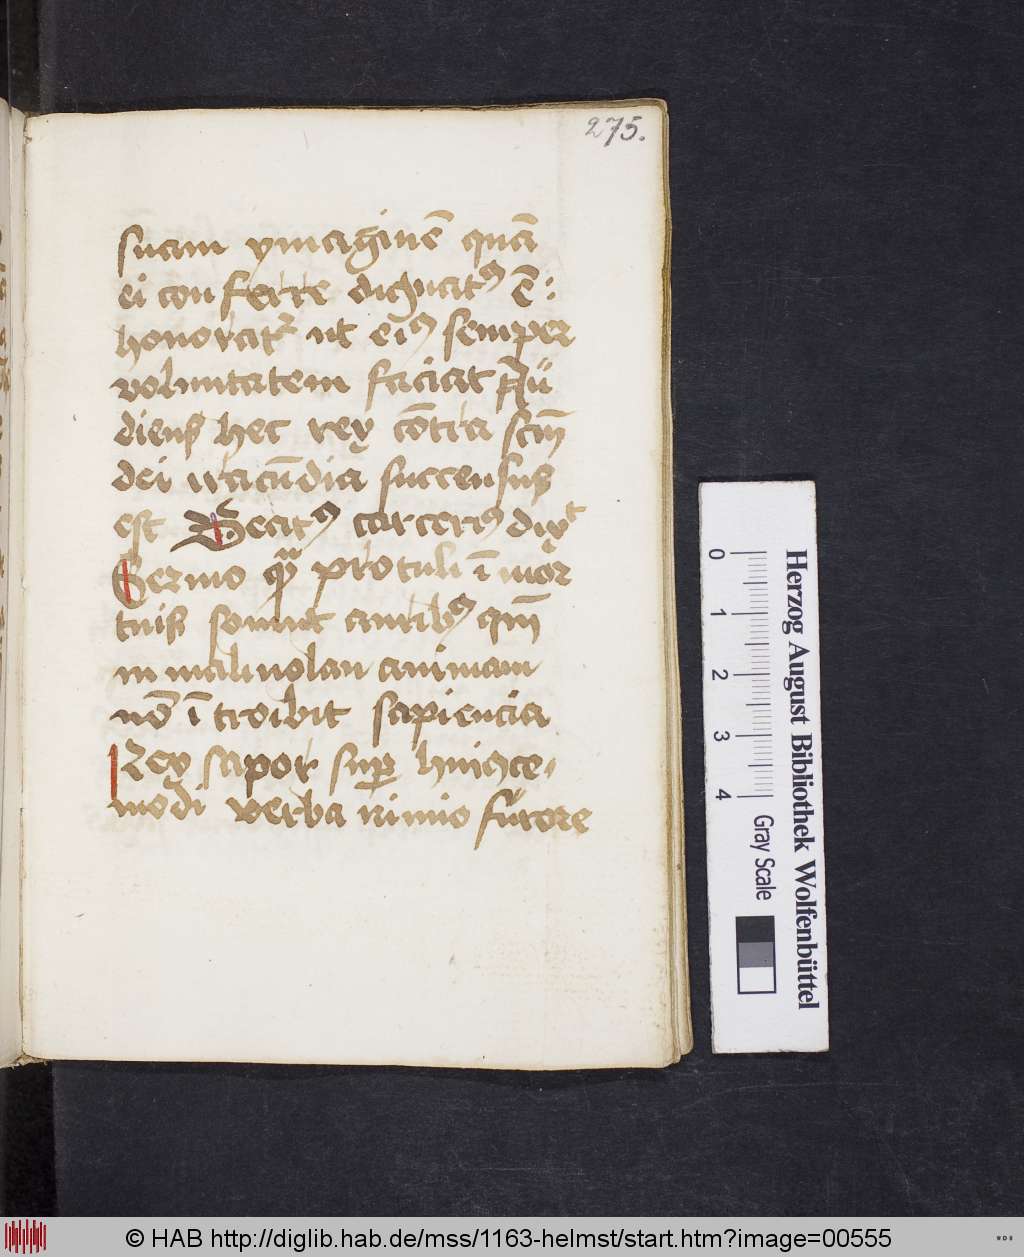 275.
suam ymaginē quā
ei conferre dignatꝰ ē:
honorat᷑ ut eiꝰ semper
voluntatem faciat
diens hec rex cōtra scm̄
dei iracūdia succensus
est Beatꝰ carcerꝰ dixᵗ
Sermo protuli ī mor
tuis sonuit auribꝰ qm̄
in maliuolam animam
nō ītroibit sapiencia
Rex sapor suꝑ huiꝰce⸗
modi verba nimio furore
0 1 2 3 4
Gray Scale
Herzog August Bibliothek Wolfenbüttel
© HAB http://diglib.hab.de/mss/1163-helmst/start.htm?image=00555